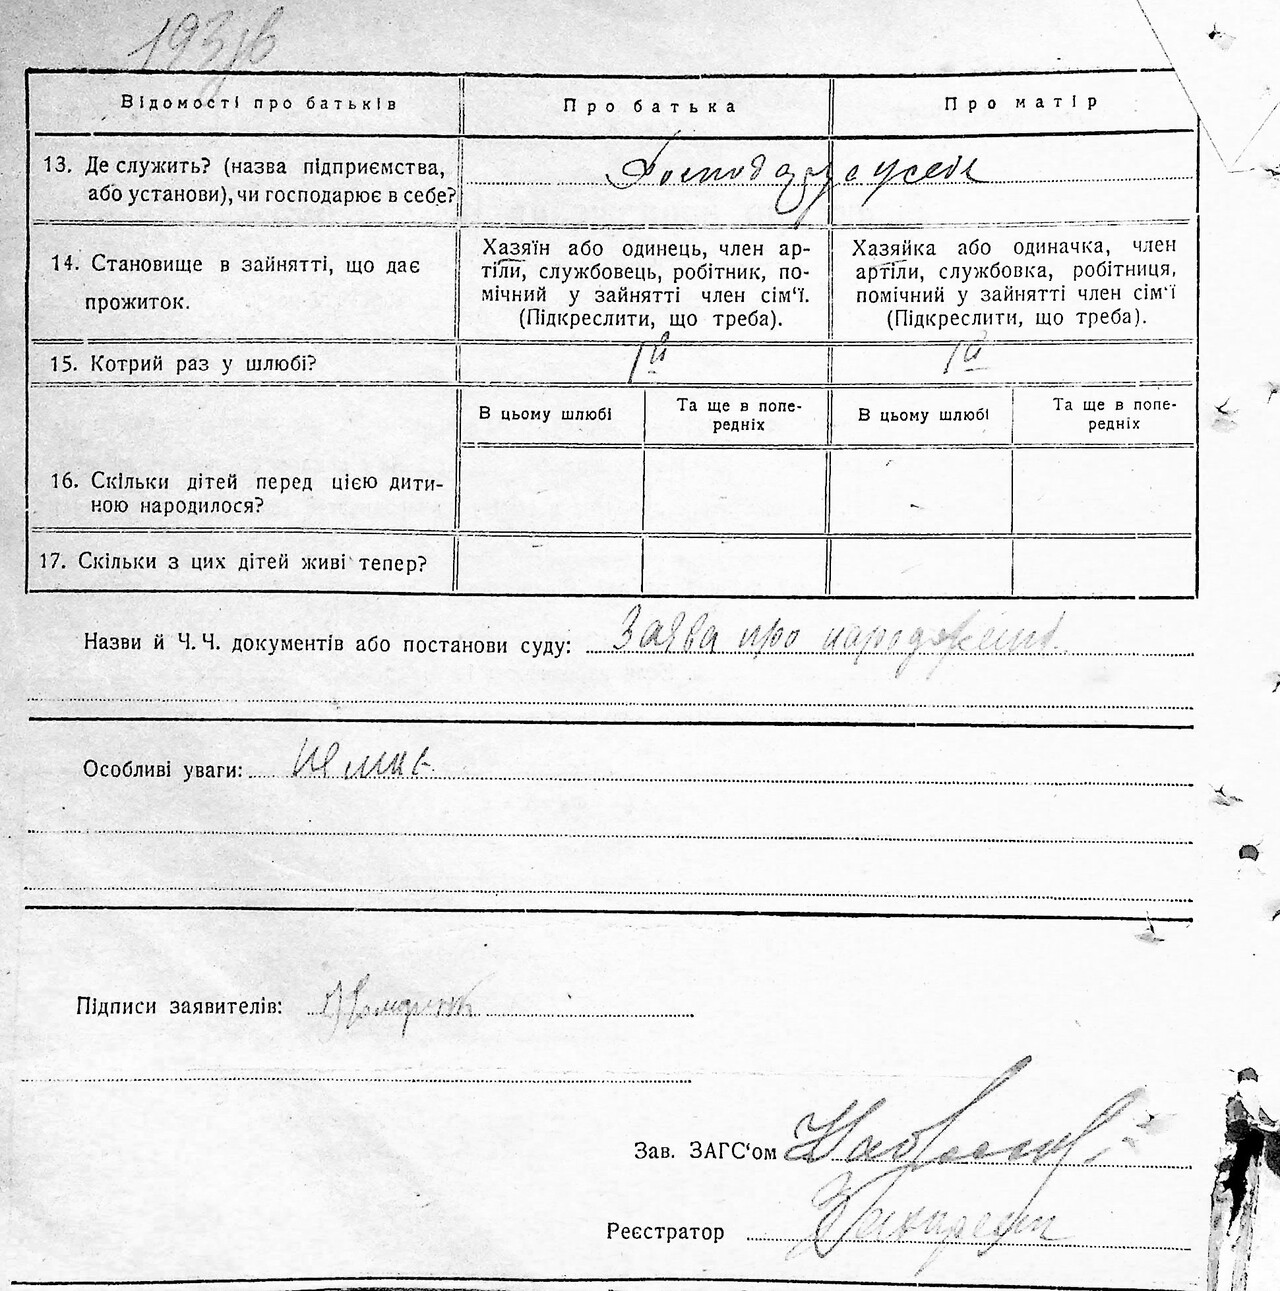 Відомості про батьків
Про батька
Про матір
13. Де служить? (назва підприємства,
або установи), чи господарює в себе?
Господарує у себе
14. Становище в зайнятті, що дає
прожиток.
Хазяїн або одинець, член ар-
тіли, службовець, робітник, по-
мічний у зайнятті член сім‘ї.
(Підкреслити, що треба).
Хазяйка або одиначка, член
артіли, службовка, робітниця,
помічний у зайнятті член сім‘ї
(Підкреслити, що треба).
15. Котрий раз у шлюбі?
1й
1й
В цьому шлюбі
Та ще в попе-
редніх
В цьому шлюбі
Та ще в попе-
редніх
16. Скільки дітей перед цією дити-
ною народилося?
-
17. Скільки з цих дітей живі тепер?
Назви й Ч. Ч. документів або постанови суду: Заява про народжені
Особливі уваги: нема
Підписи заявителів:
Зав. ЗАГС‘ом
Реєстратор